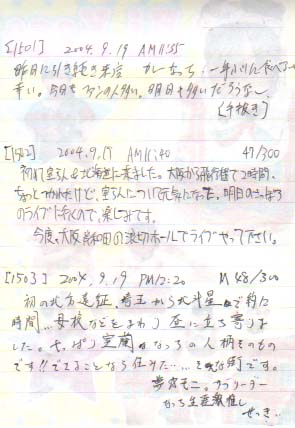 [1501] 2004.9.19 AM11:55
昨日に引き続き来店 カレーなっち、一年ぶりに食べる
辛い。今日もファンの人多い。明日も多いだろうな。
(手抜き)
[1502] 2004.9.19 AM11:40 47/300
初めて室らん&北海道に来ました。大阪から飛行機で2時間、
ちょっとつかれたけど、室らんについて元気になった。明日のさっぽろ
のライブに行くので、楽しみです。
今度、大阪岸和田の浪切ホールでライブやって下さい。
[1503] 2004.9.19 PM12:20 M 48/300
初の北方遠征、埼玉から北斗星で約12
時間…母校などをまわり 昼に立ち寄りま
した。やっぱり室蘭はなっちの人柄そのもの
です!!できることなら住みた……そんな街です。
なっち生涯推し